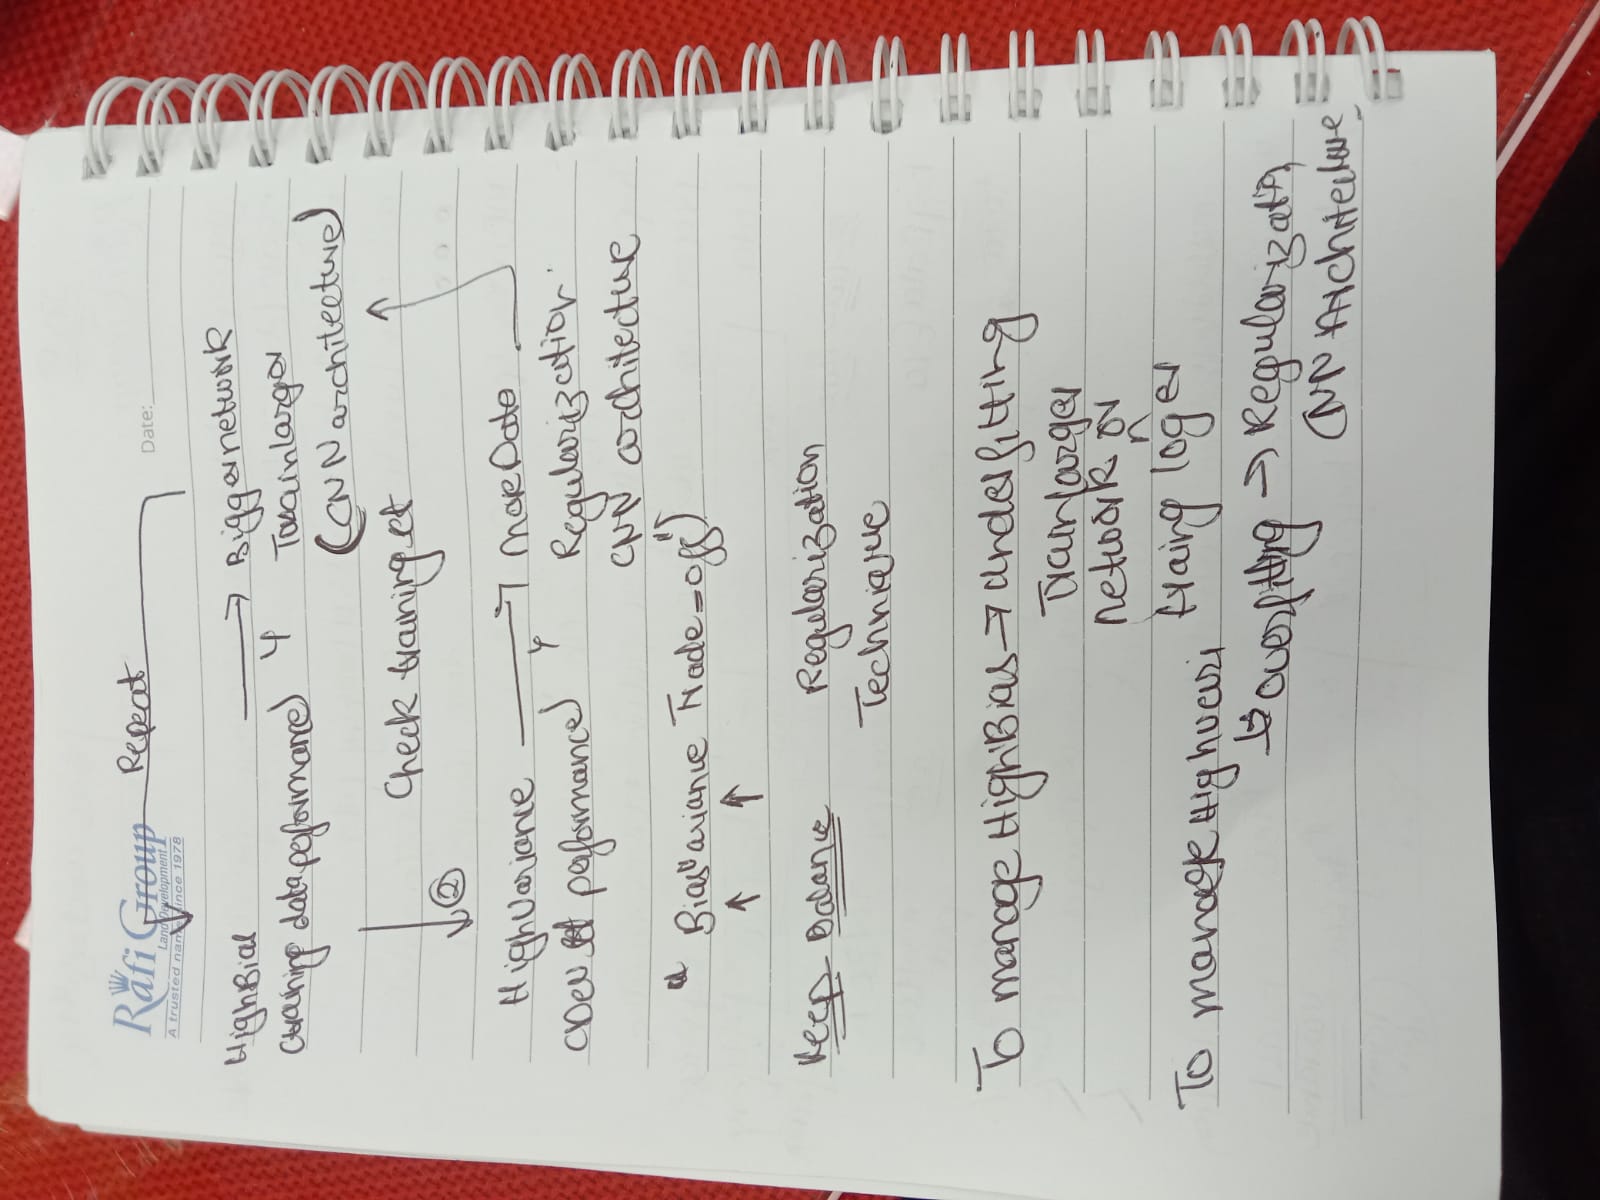 Rafi Group
Land Development
A trusted name since 1978
Date:
Repeat
High Bial → Bigger network
(training data performance) Y Train larger
(CNN architecture)
Check training et
②
High variance → more Data
(Dev set performance) Y Regularization.
CNN architecture
"Bias" ariance Trade=off)"
↑ ↑
Keep-Balance Regularization
Technique
To manage High Bias → underfitting
Train larger
network or
traing loger
To manage High veiri
↳ overfitting → Regularizatin
(NN Architecture